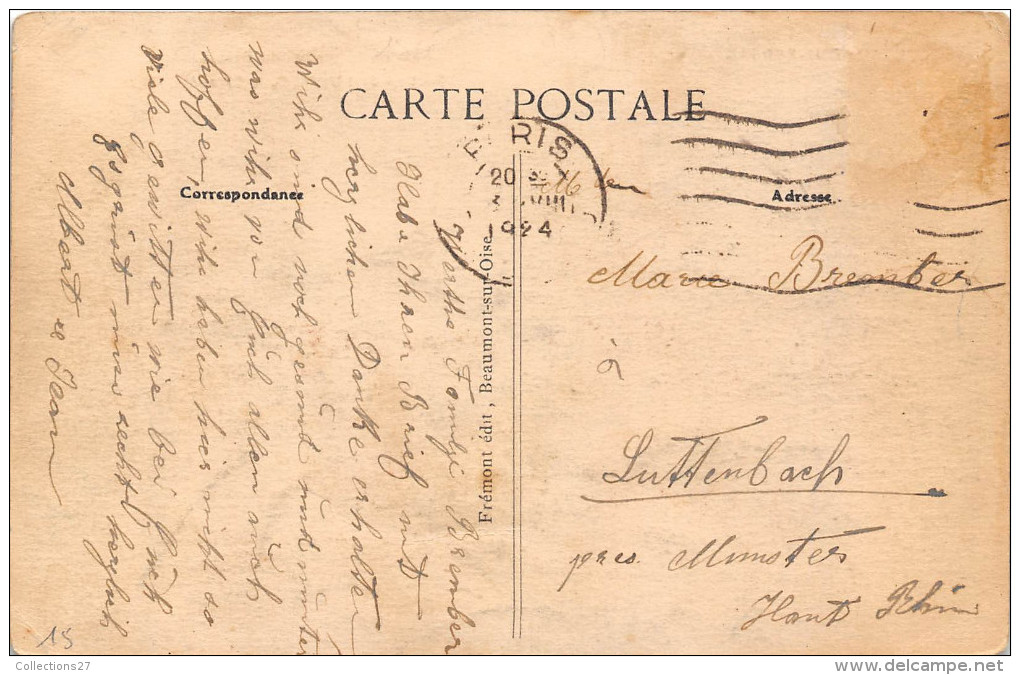 CARTE POSTALE
Correspondance
Adresse
PARIS
20
VIII
1924
Frémont édit, Beaumont-sur-Oise
Werthe Familje Brember
Habe Ihren Brief mit
herzlichen Danke erhalten
Wihr sind noch gesund und munter
was wihr von Euch allen auch
hoffen, wihr haben hier nicht so
viele gewitter wie bei Euch
Es grüst nun recht herzlich
Albert et Jean
Marie Brember
à
Luttenbach
pres Munster
Haut Rhin
15
Collections27
www.delcampe.net